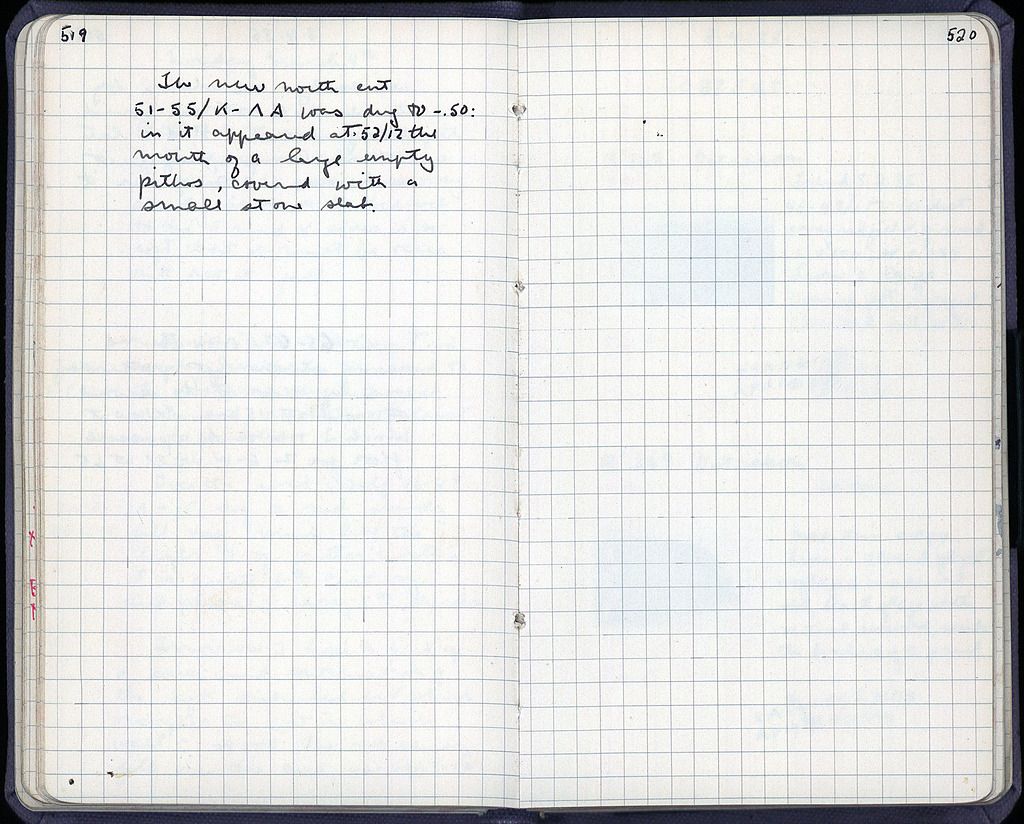 519
The new north cut
51-55/Κ-ΛΑ was dug to -.50:
in it appeared at 52/ΙΖ the
mouth of a large empty
pithos, covered with a
small stone slab.
520